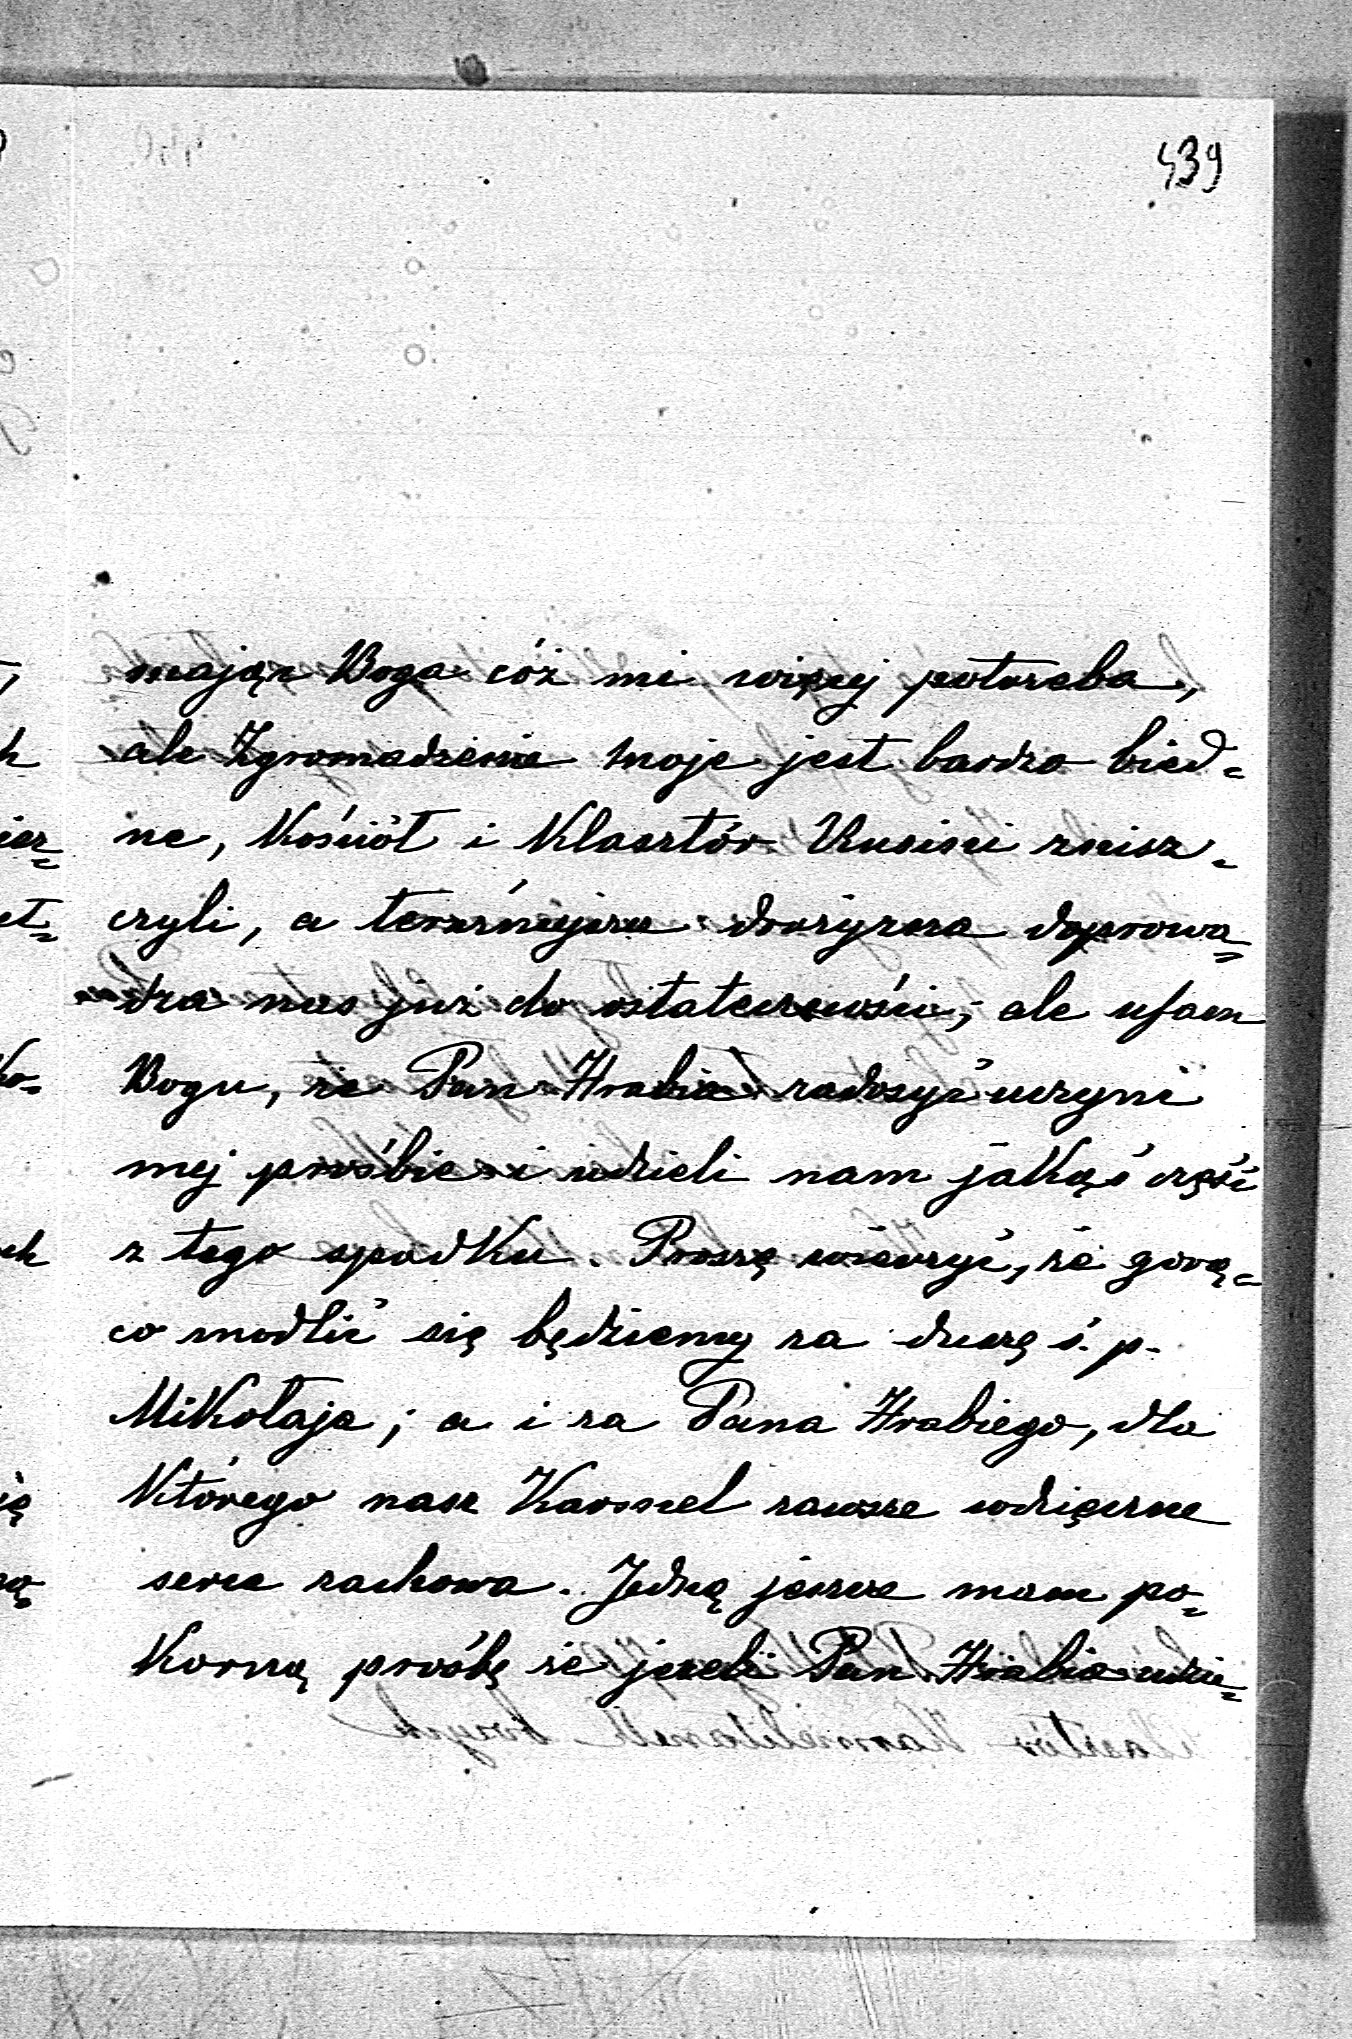 439
mając Boga cóż mi więcej potrzeba,
ale Zgromadzenie moje jest bardzo bied=
ne, Kościół i Klasztór Rusini znisz=
czyli, a terazniejsza drożyzna doprowa=
dza nas już do ostateczności; ale ufam
Bogu, że Pan Hrabia zadosyć uczyni
mej prośbie i udzieli nam jakąś część
z tego spadku. Proszę wierzyć, że gorą=
co modlić się będziemy za duszę ś. p.
Mikołaja; a i za Pana Hrabiego, dla
którego nasz Karmel zawsze wdzięczne
serce zachowa. Jedną jeszcze mam po=
korną prośbę że jeżeli Pan Hrabia udzie=